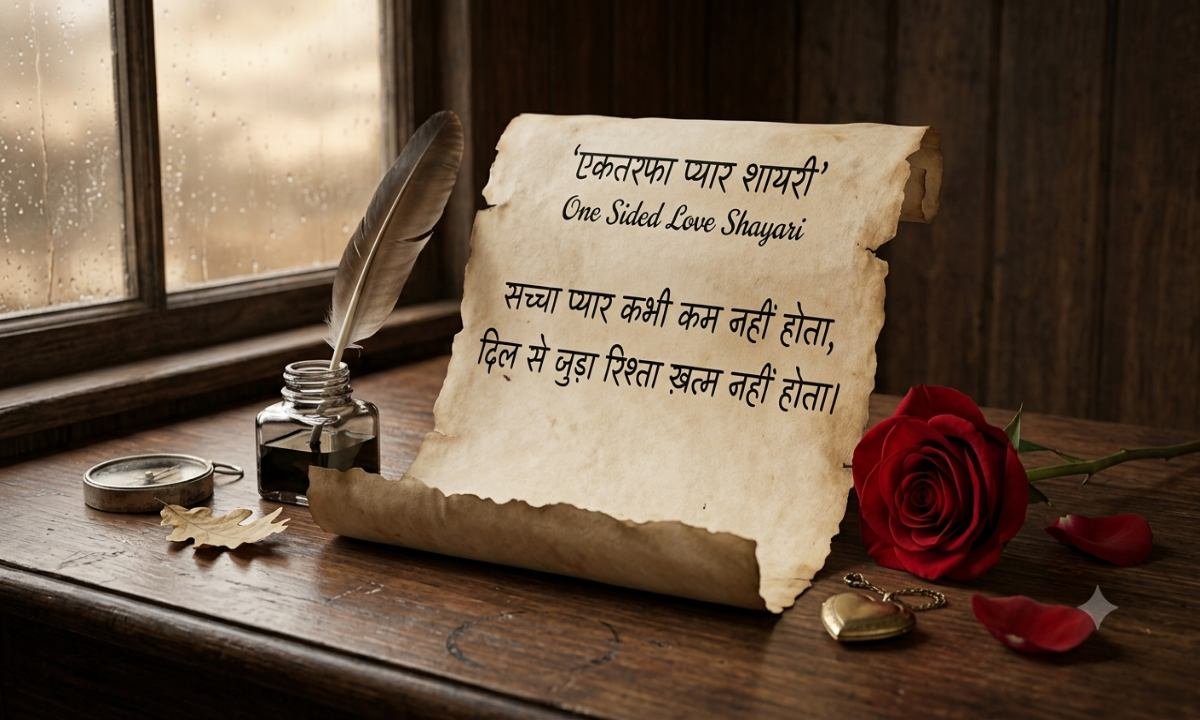 ‘एकतरफा प्यार शायरी’
One Sided Love Shayari
सच्चा प्यार कभी कम नहीं होता,
दिल से जुड़ा रिश्ता ख़त्म नहीं होता।